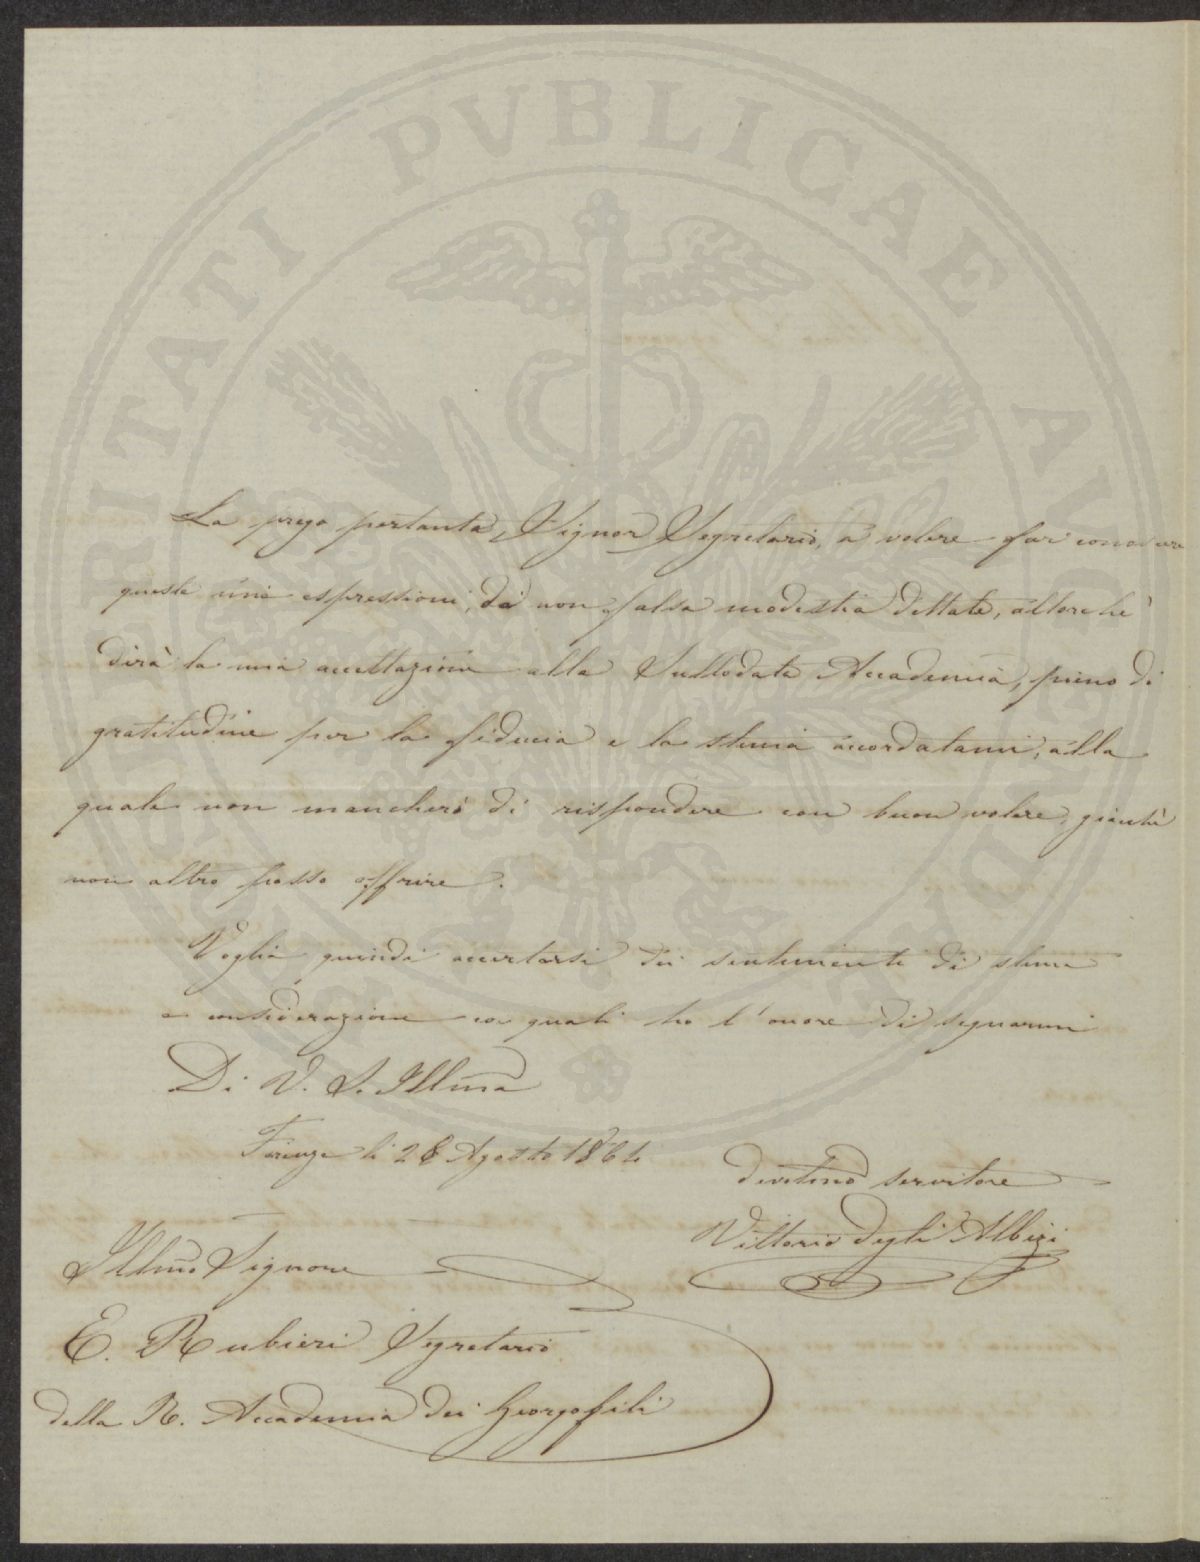 PROSPERITATI PVBLICAE AVGENDAE
La prego pertanto, Signor Segretario, a volere far conoscere
queste mie espressioni, da non falsa modestia dettate, allorchè
dirà la mia accettazione alla Sullodata Accademia, pieno di
gratitudine per la fiducia e la stima accordatami, alla
quale non mancherò di rispondere con buon volere, giacchè
non altro posso offrire.
Voglia quindi accertarsi dei sentimenti di stima
e considerazione coi quali ho l'onore di segnarmi
Di V. S. Illma
Firenze li 28 Agosto 1864
devotmo servitore
Vittorio degli Albizi
Illmo Signore
E. Rubieri Segretario
della R. Accademia dei Georgofili